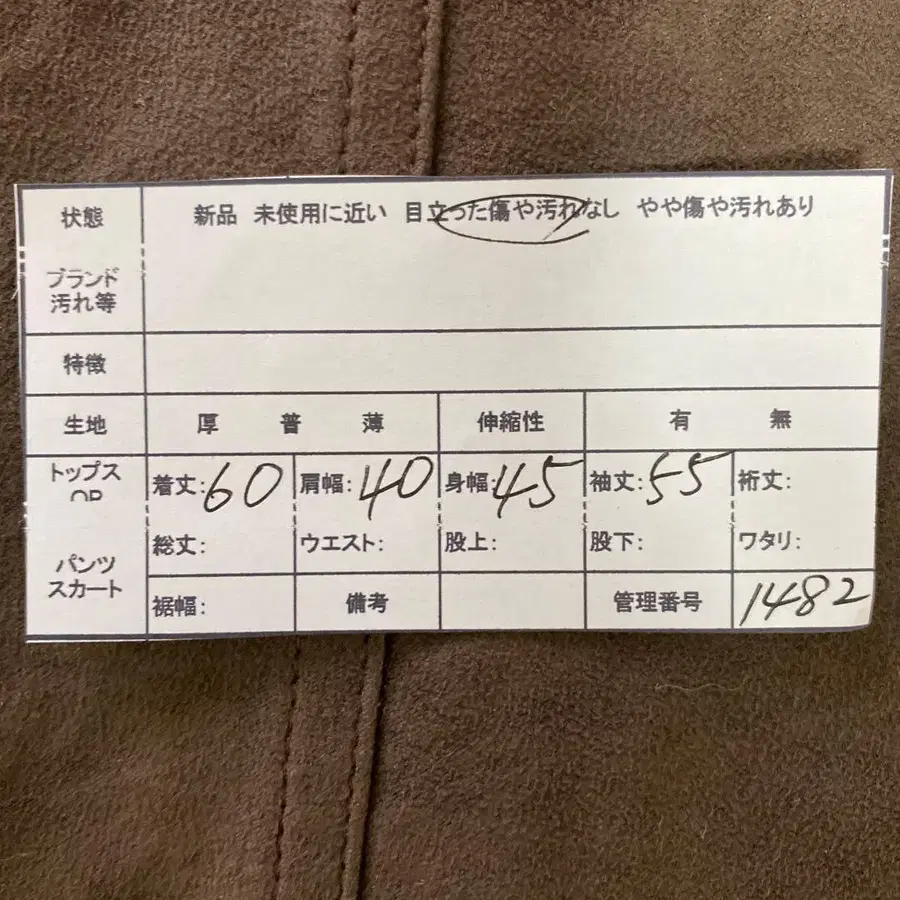 状態 新品 未使用に近い 目立った傷や汚れなし やや傷や汚れあり
ブランド
汚れ等
特徴
生地 厚 普 薄 伸縮性 有 無
トップス 着丈:60 肩幅:40 身幅:45 袖丈:55 裄丈:
OP
総丈: ウエスト: 股上: 股下: ワタリ:
パンツ
スカート
裾幅: 備考 管理番号 1482